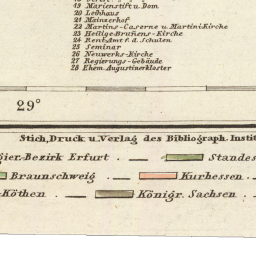 19 Marienstift u. Dom
20 Leihhaus
21 Mainzerhof
22 Martins-Caserne u. Martini Kirche
23 Heilige-Brunens-Kirche
24 Rent-Amt f. d. Schulen
25 Seminar
26 Neuwerks-Kirche
27 Regierungs-Gebäude
28 Ehem. Augustinerkloster
29°
Stich, Druck u. Verlag des Bibliograph. Instit
gier-Bezirk Erfurt
Standes
Braunschweig
Kurhessen
Köthen
Königr. Sachsen